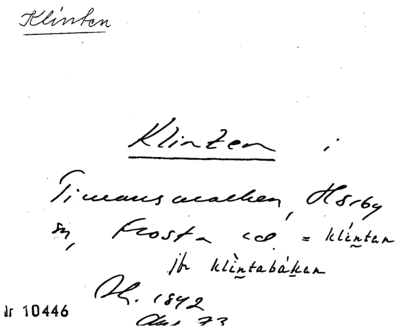 Klinten
Klinten i
Timansmarken, Hörby
sn, Frosta hd = klintan
jfr klintabákan
1892
nr 10446